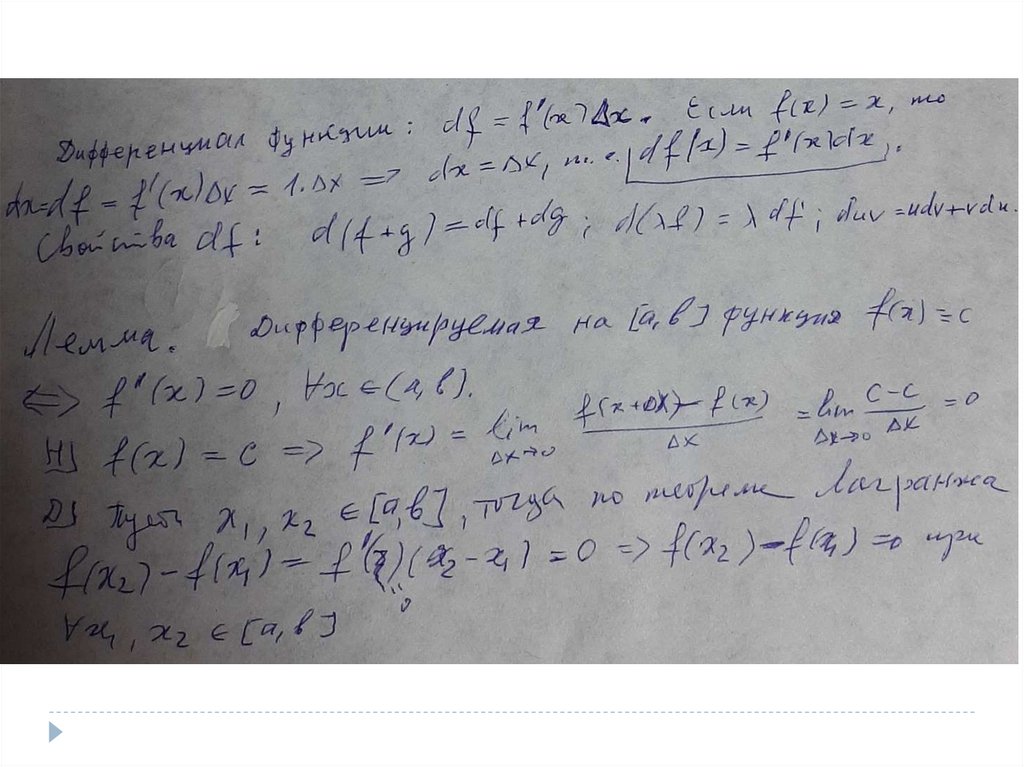 Дифференциал функции: df = f'(x) Δx. Если f(x) = x, то
dx=df = f'(x)Δx = 1·Δx => dx = Δx, т.е. df(x) = f'(x)dx.
Свойства df: d(f+g) = df + dg ; d(λf) = λ df ; duv = udv + vdu.
Лемма. Дифференцируемая на [a,b] функция f(x) = c
<=> f'(x) = 0, ∀x ∈ (a,b).
H] f(x) = c => f'(x) = lim Δx→0 (f(x+Δx) - f(x))/Δx = lim Δx→0 (c-c)/Δx = 0
D] Пусть x₁, x₂ ∈ [a,b], тогда по теореме Лагранжа
f(x₂) - f(x₁) = f'(ξ)(x₂ - x₁) = 0 => f(x₂) - f(x₁) = 0 при
"
0
∀x₁, x₂ ∈ [a,b]